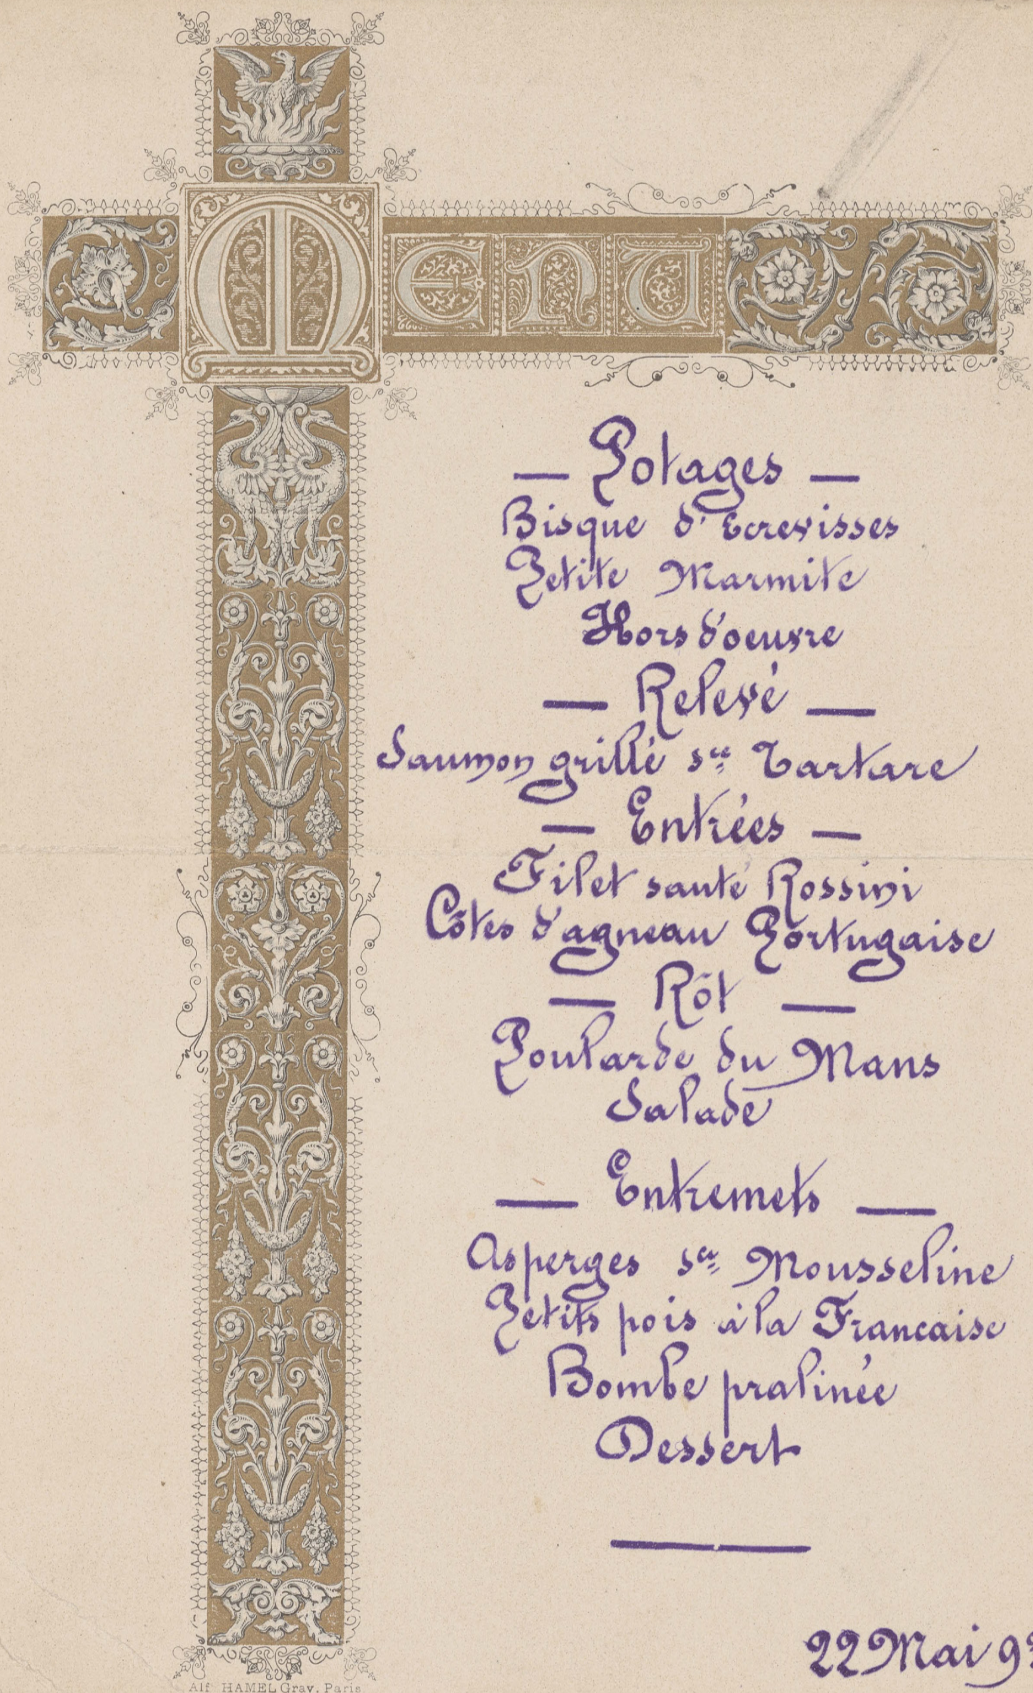 Menu
— Potages —
Bisque d'Ecrevisses
Petite Marmite
Hors d'oeuvre
— Relevé —
Saumon grillé sce Tartare
— Entrées —
Filet sauté Rossini
Côtes d'agneau Portugaise
— Rôt —
Poularde du Mans
Salade
— Entremets —
Asperges sce Mousseline
Petits pois à la Francaise
Bombe pralinée
Dessert
22 Mai
Alf HAMEL Grav. Paris